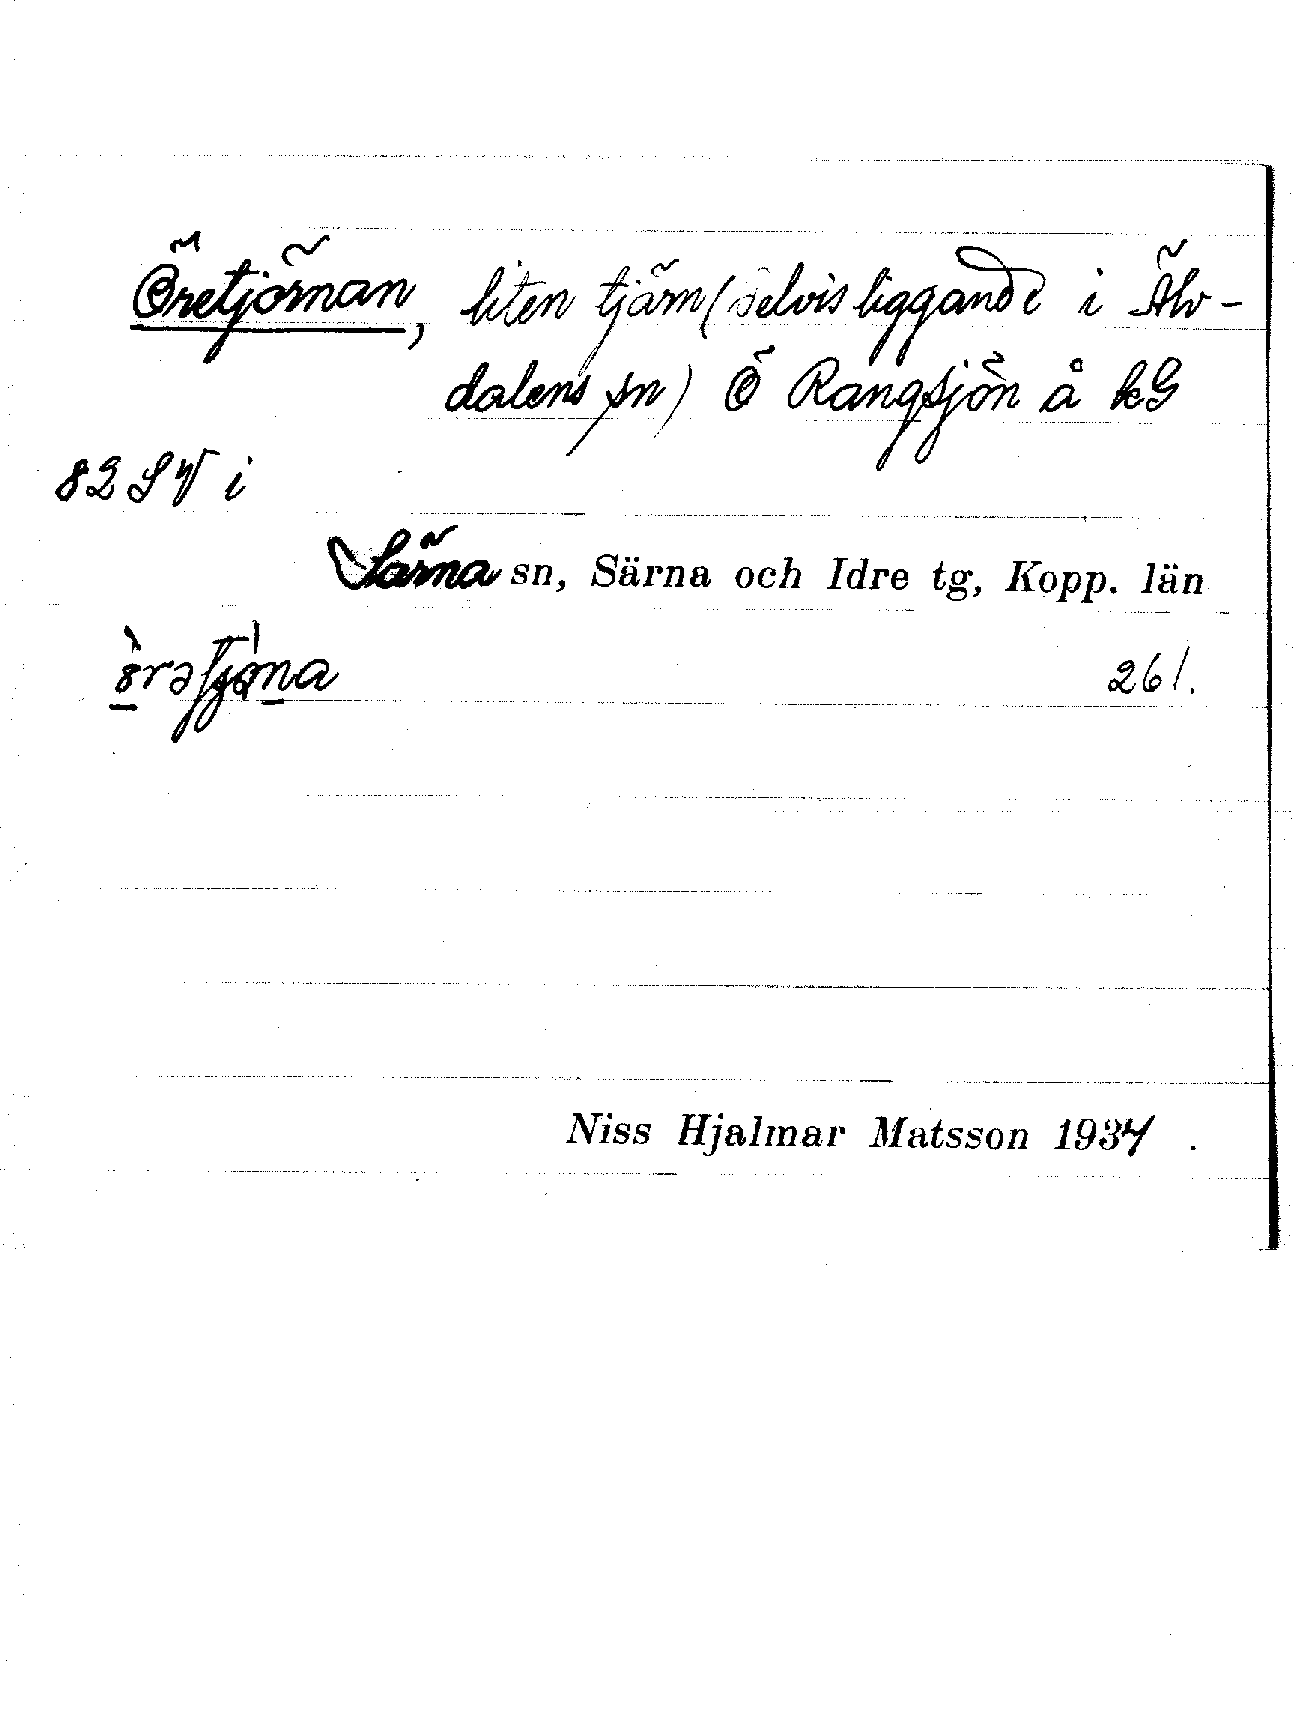 Öretjörnan, liten tjärn (delvis liggande i Älv-
dalens sn) Ö Rangsjön å kG
82 SV i
Särna sn, Särna och Idre tg, Kopp. län
261.
Niss Hjalmar Matsson 1934.